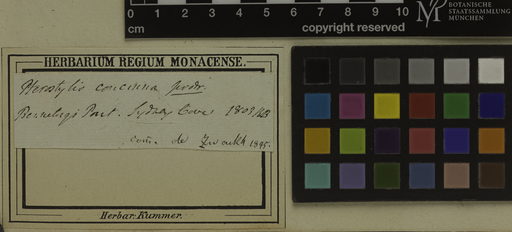 0 1 2 3 4 5 6 7 8 9 10
cm
copyright reserved
BOTANISCHE
STAATSSAMMLUNG
MÜNCHEN
HERBARIUM REGIUM MONACENSE.
Pterostylis concinna
Sydney Cove
com. de 1895.
Herbar: Kummer.